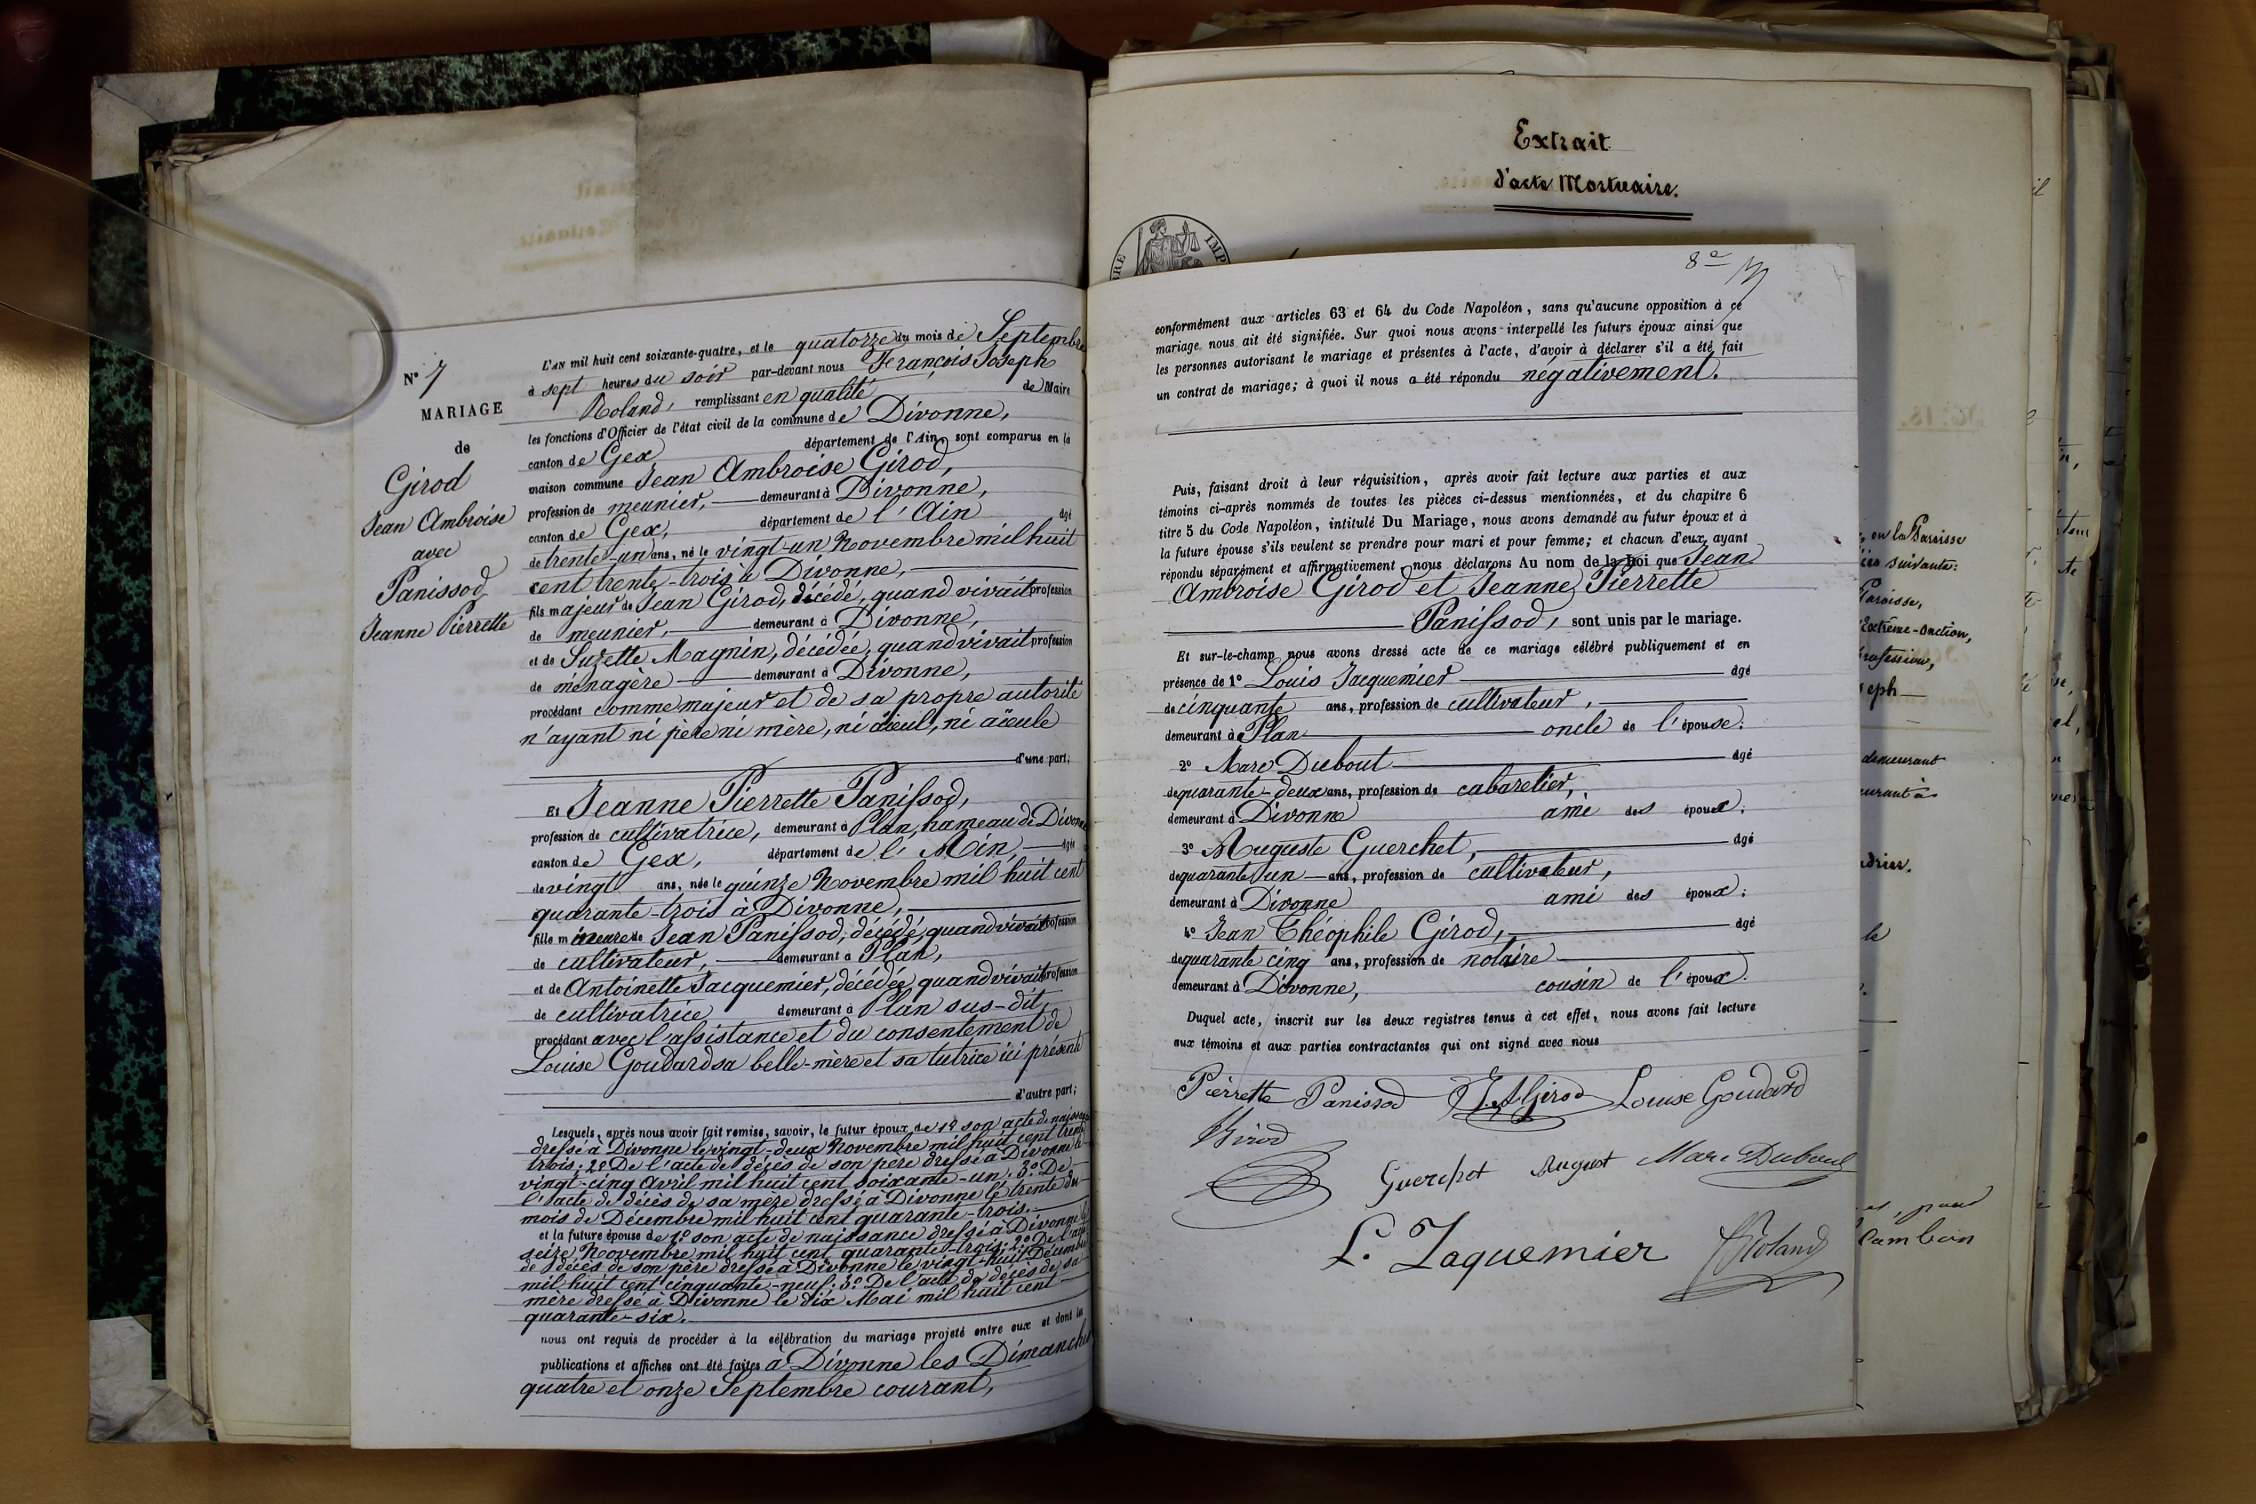 N° 7
MARIAGE
de
Girod
Jean Ambroise
avec
Panissod
Jeanne Pierrette
L'AN mil huit cent soixante-quatre, et le quatorze du mois de Septembre
à sept heures du soir par-devant nous François Joseph
Roland, remplissant en qualité de Maire
les fonctions d'Officier de l'état civil de la commune de Divonne,
canton de Gex département de l'Ain, sont comparus en la
maison commune Jean Ambroise Girod,
profession de meunier, demeurant à Divonne,
canton de Gex, département de l'Ain âgé
de trente-un ans, né le vingt-un Novembre mil huit
cent trente-trois à Divonne,
fils majeur de Jean Girod, décédé, quand vivait profession
de meunier, demeurant à Divonne,
et de Suzette Magnin, décédée, quand vivait profession
de ménagère demeurant à Divonne,
procédant comme majeur et de sa propre autorité
n'ayant ni père ni mère, ni aïeul, ni aïeule
d'une part;
Et Jeanne Pierrette Panissod,
profession de cultivatrice, demeurant à Plan, hameau de Divonne
canton de Gex, département de l'Ain, âgée
de vingt ans, née le quinze Novembre mil huit cent
quarante-trois à Divonne,
fille mineure de Jean Panissod, décédé, quand vivait profession
de cultivateur, demeurant à Plan,
et de Antoinette Jacquemier, décédée, quand vivait profession
de cultivatrice demeurant à Plan sus-dit,
procédant avec l'assistance et du consentement de
Louise Goudard sa belle-mère et sa tutrice ici présente
d'autre part;
Lesquels, après nous avoir fait remise, savoir, le futur époux de 1° son acte de naissance
dressé à Divonne le vingt-deux Novembre mil huit cent trente
trois. 2° De l'acte de décès de son père dressé à Divonne le
vingt-cinq Avril mil huit cent soixante-un. 3° De
l'acte de décès de sa mère dressé à Divonne le trente du
mois de Décembre mil huit cent quarante-trois.
et la future épouse de 1° son acte de naissance dressé à Divonne le
seize Novembre mil huit cent quarante-trois. 2° De l'acte
de décès de son père dressé à Divonne le vingt-huit Décembre
mil huit cent cinquante-neuf. 3° De l'acte de décès de sa
mère dressé à Divonne le dix Mai mil huit cent
quarante-six.
nous ont requis de procéder à la célébration du mariage projeté entre eux et dont les
publications et affiches ont été faites à Divonne les Dimanches
quatre et onze Septembre courant,
Extrait
d'acte Mortuaire.
8e
conformément aux articles 63 et 64 du Code Napoléon, sans qu'aucune opposition à ce
mariage nous ait été signifiée. Sur quoi nous avons interpellé les futurs époux ainsi que
les personnes autorisant le mariage et présentes à l'acte, d'avoir à déclarer s'il a été fait
un contrat de mariage; à quoi il nous a été répondu négativement.
Puis, faisant droit à leur réquisition, après avoir fait lecture aux parties et aux
témoins ci-après nommés de toutes les pièces ci-dessus mentionnées, et du chapitre 6
titre 5 du Code Napoléon, intitulé Du Mariage, nous avons demandé au futur époux et à
la future épouse s'ils veulent se prendre pour mari et pour femme; et chacun d'eux ayant
répondu séparément et affirmativement, nous déclarons Au nom de la Loi que Jean
Ambroise Girod et Jeanne Pierrette
Panissod, sont unis par le mariage.
Et sur-le-champ nous avons dressé acte de ce mariage célébré publiquement et en
présence de 1° Louis Jacquemier âgé
de cinquante ans, profession de cultivateur,
demeurant à Plan oncle de l'épouse.
2° Marc Dubout âgé
de quarante-deux ans, profession de cabaretier,
demeurant à Divonne ami des époux;
3° Auguste Guerchet, âgé
de quarante un ans, profession de cultivateur,
demeurant à Divonne ami des époux;
4° Jean Théophile Girod, âgé
de quarante cinq ans, profession de notaire
demeurant à Divonne, cousin de l'époux.
Duquel acte, inscrit sur les deux registres tenus à cet effet, nous avons fait lecture
aux témoins et aux parties contractantes qui ont signé avec nous
Pierrette Panissod J. A. Girod Louise Goudard
Girod
Guerchet August Marc Dubout
L. Jaquemier Roland
, en la Paroisse
suivante:
Paroisse,
Extrême-onction,
profession,
demeurant